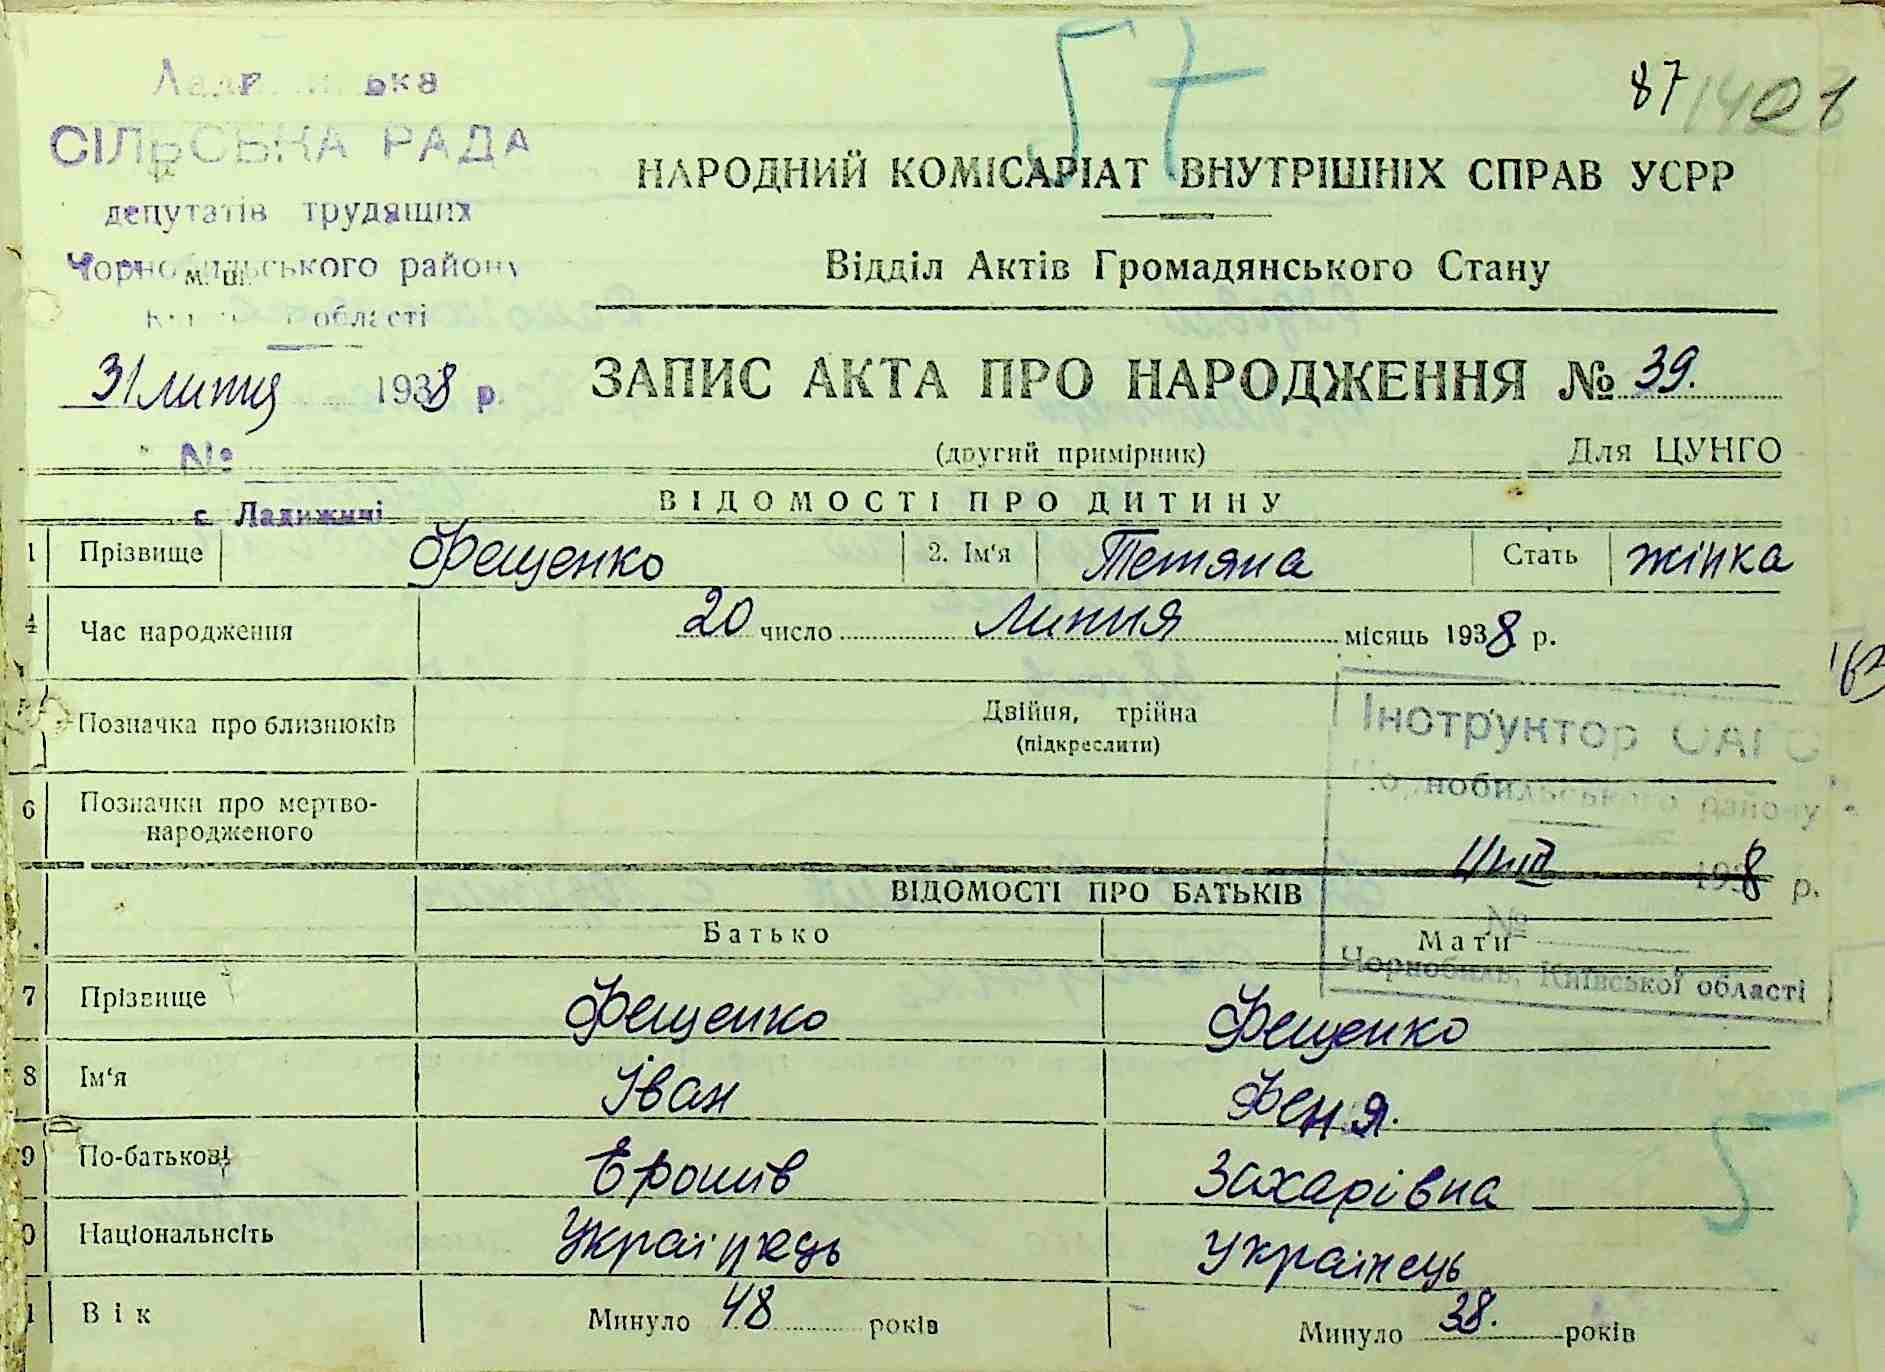 57
87
СІЛЬСЬКА РАДА
депутатів трудящих
Чорнобильського району
м. ш.
області
31 липня 1938 р.
№
с. Ладижичі
НАРОДНИЙ КОМІСАРІАТ ВНУТРІШНІХ СПРАВ УСРР
Відділ Актів Громадянського Стану
ЗАПИС АКТА ПРО НАРОДЖЕННЯ № 39.
(другий примірник) Для ЦУНГО
ВІДОМОСТІ ПРО ДИТИНУ
1 Прізвище Фещенко 2. Ім'я Тетяна Стать жінка
4 Час народження 20 число Липня місяць 1938 р.
5 Позначка про близнюків Двійня, трійна
(підкреслити)
Інструктор ОАГС
Чорнобильського району
6 Позначки про мертво-
народженого
1938 р.
№
Чорнобиль, Київської області
ВІДОМОСТІ ПРО БАТЬКІВ
Батько Мати
7 Прізвище Фещенко Фещенко
8 Ім'я Іван Феня.
9 По-батькові Захарівна
0 Національність Українець Українець
1 Вік Минуло 48 років Минуло 38. років